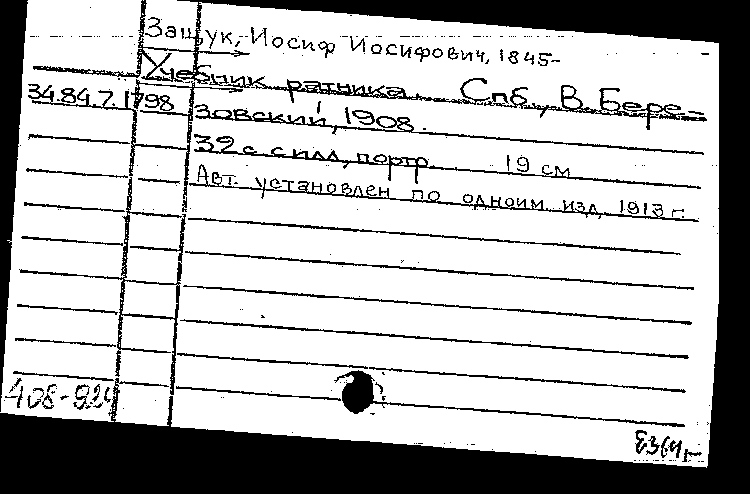 Защук, Иосиф Иосифович, 1845-
Учебник ратника. Спб., В. Бере-
34.84.7.1798 зовский, 1908.
32 с. с илл., портр. 19 см
Авт. установлен по одноим. изд. 1913 г.
408-924